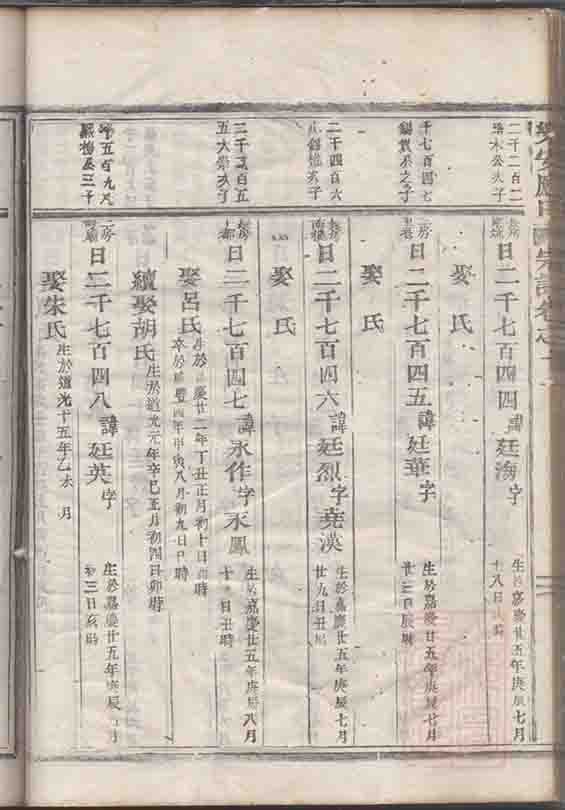 二千二百二
木公次子
長房
日二千七百四四諱廷海字
生於嘉慶廿五年庚辰七月
八日時
娶氏
千七百四七
錫 之子
日二千七百四五諱廷華字
生於嘉慶廿五年庚辰七月
廿三日辰時
娶氏
二千四百六
錫 次子
長房
日二千七百四六諱廷烈字堯漢
生於嘉慶廿五年庚辰七月
廿九日丑時
娶氏
二千 百五
五大 次子
長房
日二千七百四七諱永作字永鳳
生於嘉慶廿五年庚辰八月
十 日丑時
娶呂氏
生於 慶廿二年丁丑正月初十日 時
卒於咸豐四年甲寅八月初九日 時
續娶胡氏生於道光元年辛巳五月初四日卯時
五百九
三子
房
日二千七百四八諱廷英字
生於嘉慶廿五年庚辰 月
初三日亥時
娶朱氏生於道光十五年乙未 月